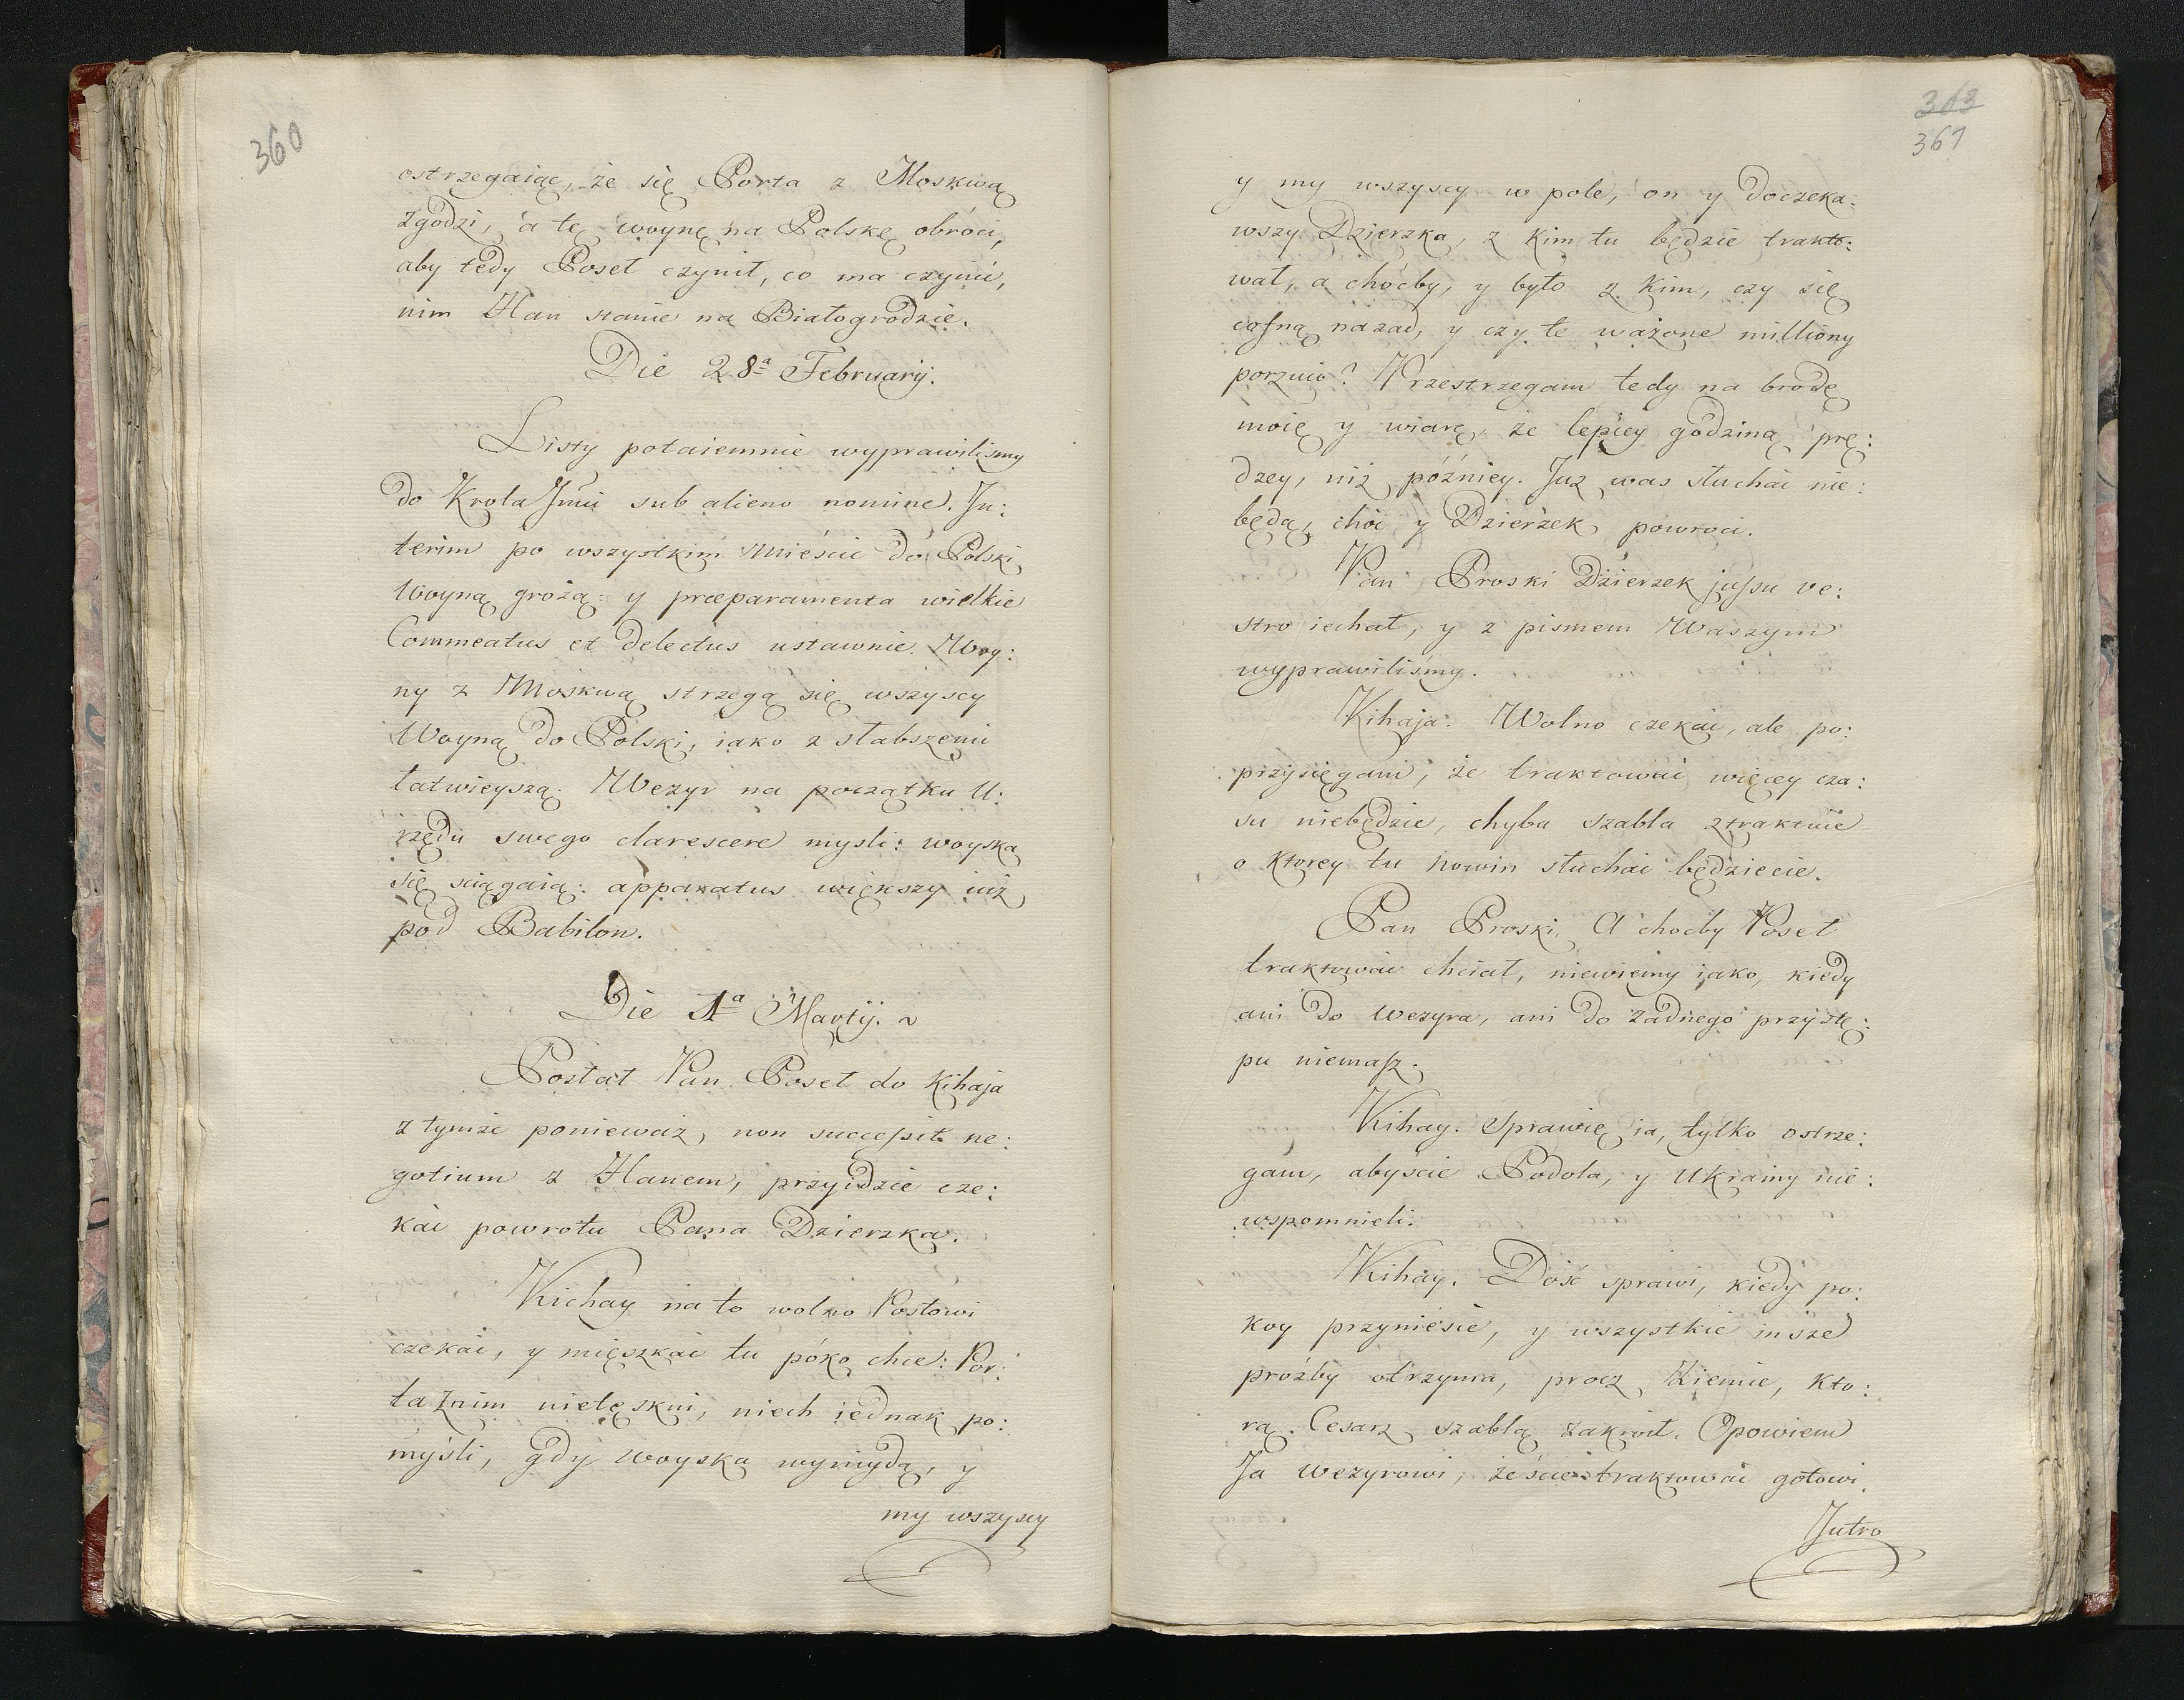 360
ostrzegaiąc, że się Porta z Moskwą
zgodzi, a tę woynę na Polskę obróci,
aby tedy Poseł czynił, co ma czynić,
nim Han stanie na Białogrodzie.
Die 28ª February.
Listy potaiemnie wyprawiliśmy
do Krola Jmci sub alieno nomine. In:
terim po wszystkim Mieście do Polski
Woyną grożą: y præparamenta wielkie
Commeatus et delectus ustawnie. Woy:
ny z Moskwą strzegą się wszyscy
Woyną do Polski, iako z słabszemi
łatwieyszą. Wezyr na początku U:
rzędu swego clarescere mysli: woyska
się sciągaią: apparatus większy niż
pod Babilon.
Die 1ª Martij.
Posłał Pan Poseł do Kihaja
z tymże ponieważ, non successit ne:
gotium z Hanem, przyidzie cze:
kać powrotu Pana Dzierzka.
Kichay na to wolno Posłowi
czekać, y mięszkać tu póko chce: Por:
ta z nim nietęskni, niech iednak po:
myśli, gdy woyska wynidą, y
my wszyscy
363
361
y my wszyscy w pole, on y doczeka:
wszy Dzierzka, z kim tu będzie trakto:
wał, a choćby, y było z kim, czy się
cofną nazad, y czy te ważone milliony
porzuć? Przestrzegam tedy na brodę
moię y wiarę, że lepiey godziną prę:
dzey, niż pózniey. Już was słuchać nie:
będą, choć y Dzierżek powroci.
Pan Proski Dzierzek jussu ve:
stro iechał, y z pismem Waszym
wyprawiliśmy.
Kihaja. Wolno czekać, ale po:
przysięgam, że traktować więcey cza:
su niebędzie, chyba szabla ztraktuie
o ktorey tu nowin słuchać będziecie.
Pan Proski. A choćby Poseł
traktować chciał, niewiemy iako, kiedy
ani do Wezyra, ani do żadnego przystę:
pu niemasz.
Kihay. Sprawię ia, tylko ostrze:
gam, abyście Podola, y Ukrainy nie:
wspomnieli.
Kihay. Dość sprawi, kiedy po:
koy przyniesie, y wszystkie insze
prózby otrzyma, procz Ziemie, kto:
rą Cesarz szablą zakroił. Opowiem
Ja Wezyrowi, żeście traktować gotowi.
Jutro